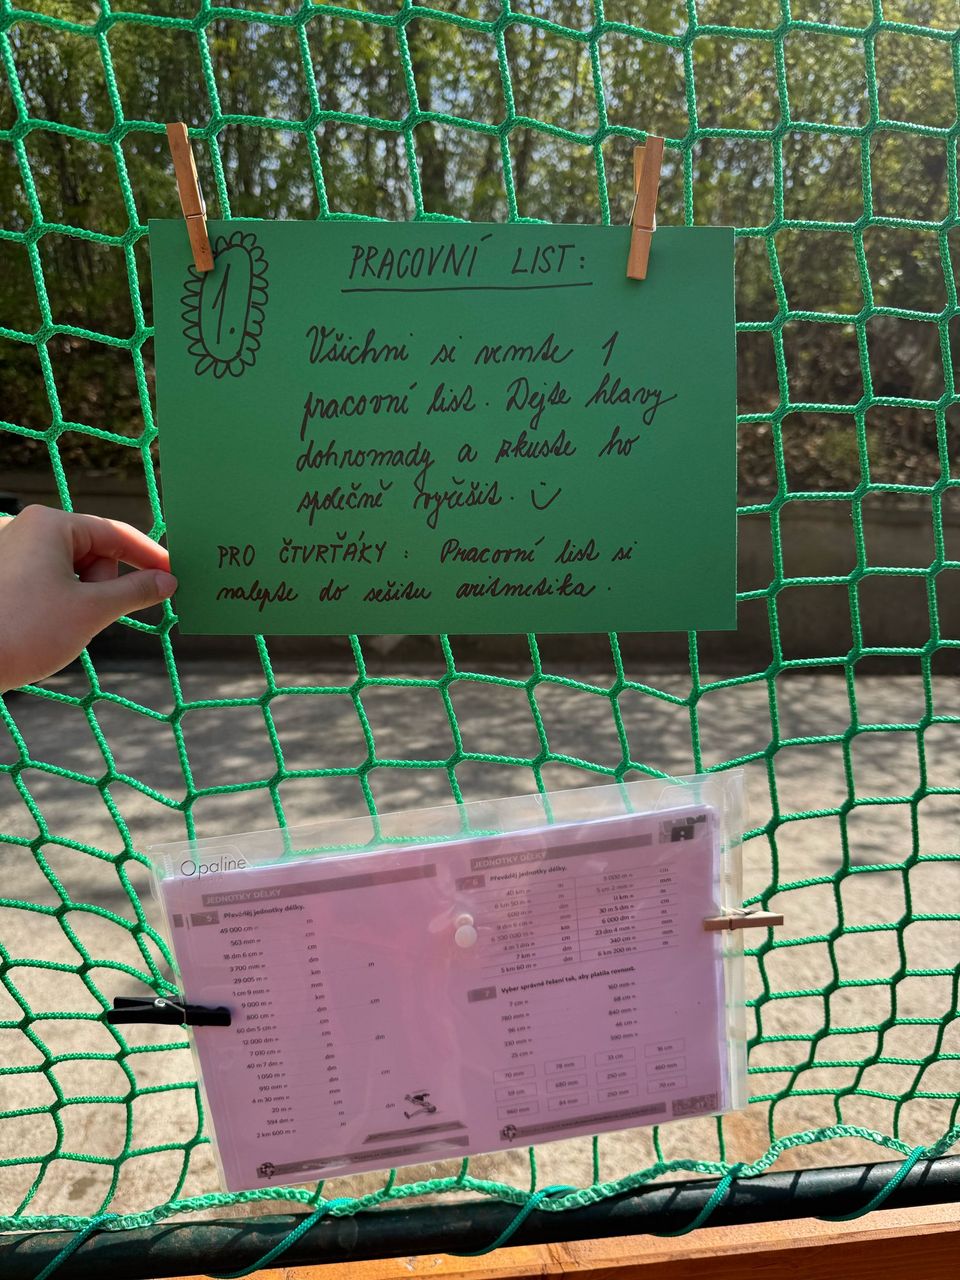 1.
PRACOVNÍ LIST:
Všichni si vemte 1
pracovní list. Dejte hlavy
dohromady a zkuste ho
společně vyřešit. :)
PRO ČTVRŤÁKY: Pracovní list si
nalepte do sešitu aritmetika.
Opaline
JEDNOTKY DÉLKY
5 Převáděj jednotky délky.
49 000 cm = m
563 mm = cm
18 dm 6 cm = cm
3 700 mm = dm
29 005 m = km m
1 cm 9 mm = mm
9 000 m = km
800 cm = dm
60 dm 5 cm = cm
12 000 dm = m
7 010 cm =
40 m 7 dm = dm
1 050 m =
910 mm =
4 m 30 mm = mm
20 m = cm
594 dm = m dm
2 km 600 m = m
JEDNOTKY DÉLKY
6 Převáděj jednotky délky.
40 km = m
6 km 50 m = m
600 m =
7 km = dm
5 km 60 m = dm
9 000 m = cm
5 cm 2 mm = mm
11 km = m
30 m 5 dm = cm
6 000 dm = m
23 dm 4 mm = mm
340 cm =
6 km 200 m = m
7 Vyber správné řešení tak, aby platila rovnost.
7 cm = 160 mm =
780 mm = 68 cm =
96 cm = 840 mm =
330 mm = 46 cm =
25 cm = 590 mm =
70 mm 78 mm 33 cm 16 cm
59 cm 680 mm 250 cm 460 mm
960 mm 84 mm 250 mm 70 cm